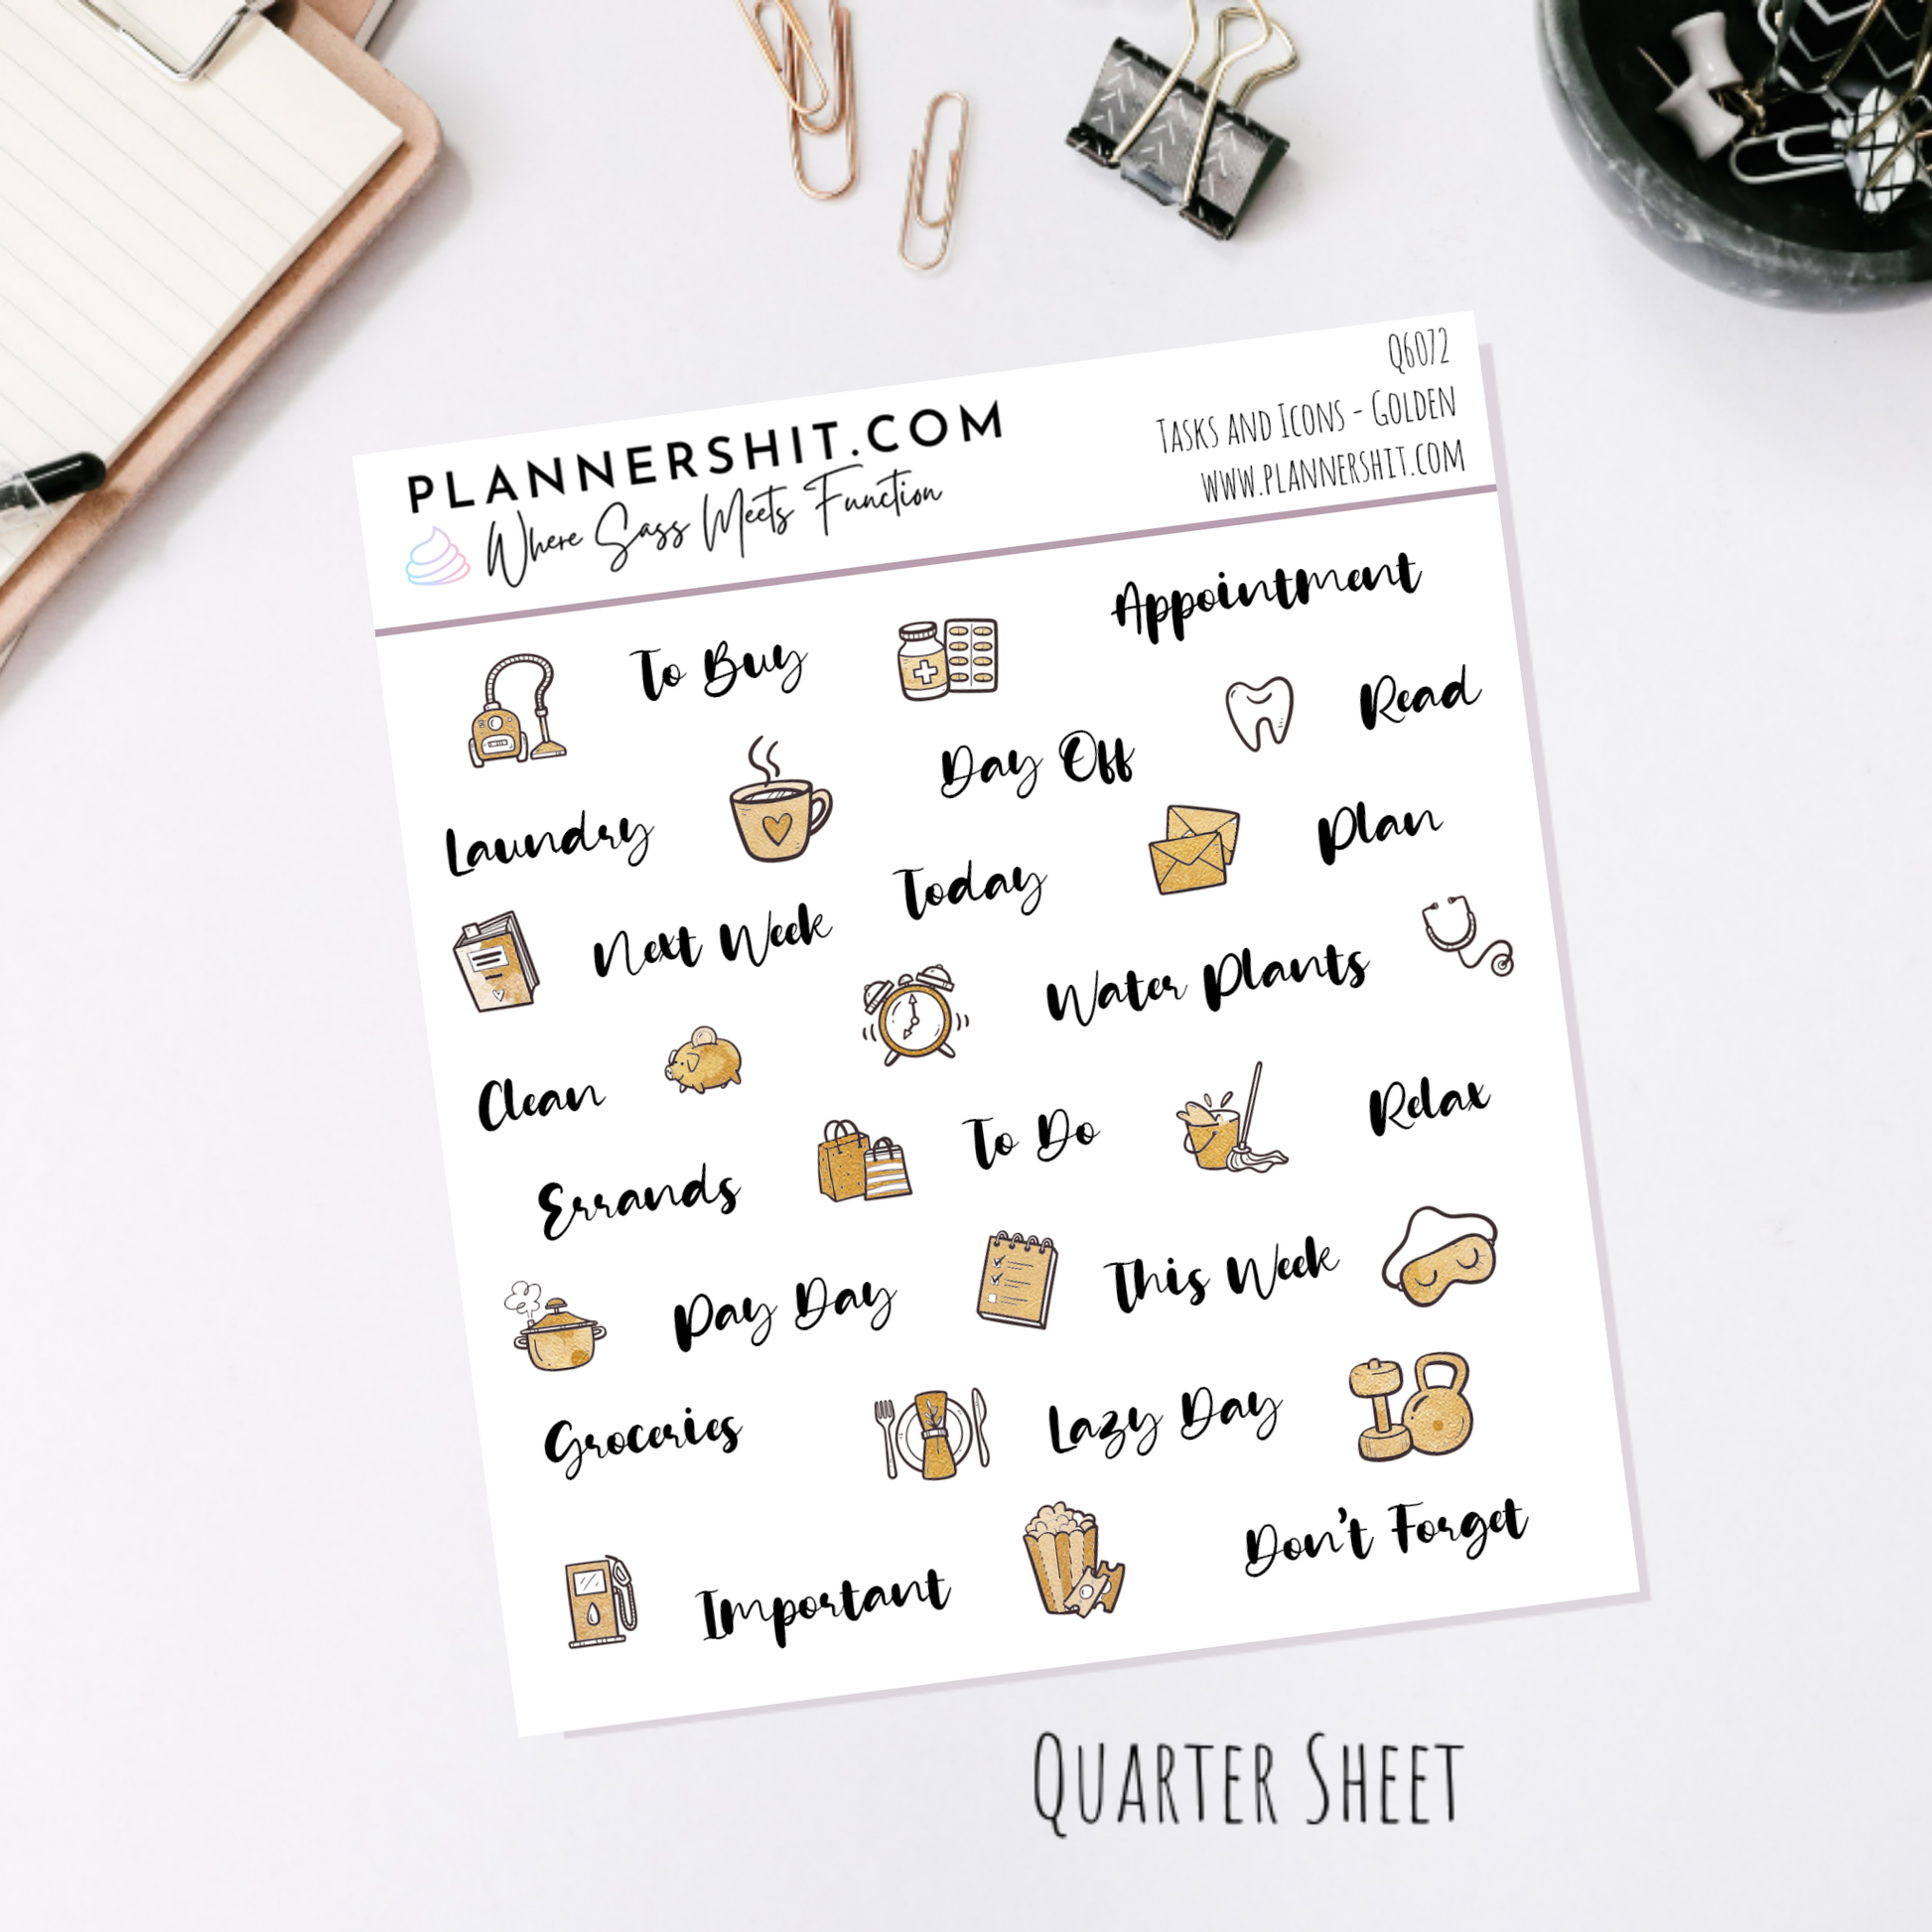 PLANNERSHIT.COM
Where Sass Meets Function
Q6072
Tasks and Icons - Golden
www.plannershit.com
To Buy
Appointment
Read
Day Off
Laundry
Plan
Today
Next Week
Water Plants
Clean
Relax
To Do
Errands
This Week
Pay Day
Groceries
Lazy Day
Don't Forget
Important
Quarter Sheet